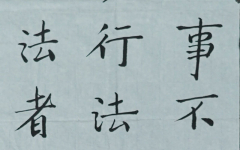 事不
行法
法者